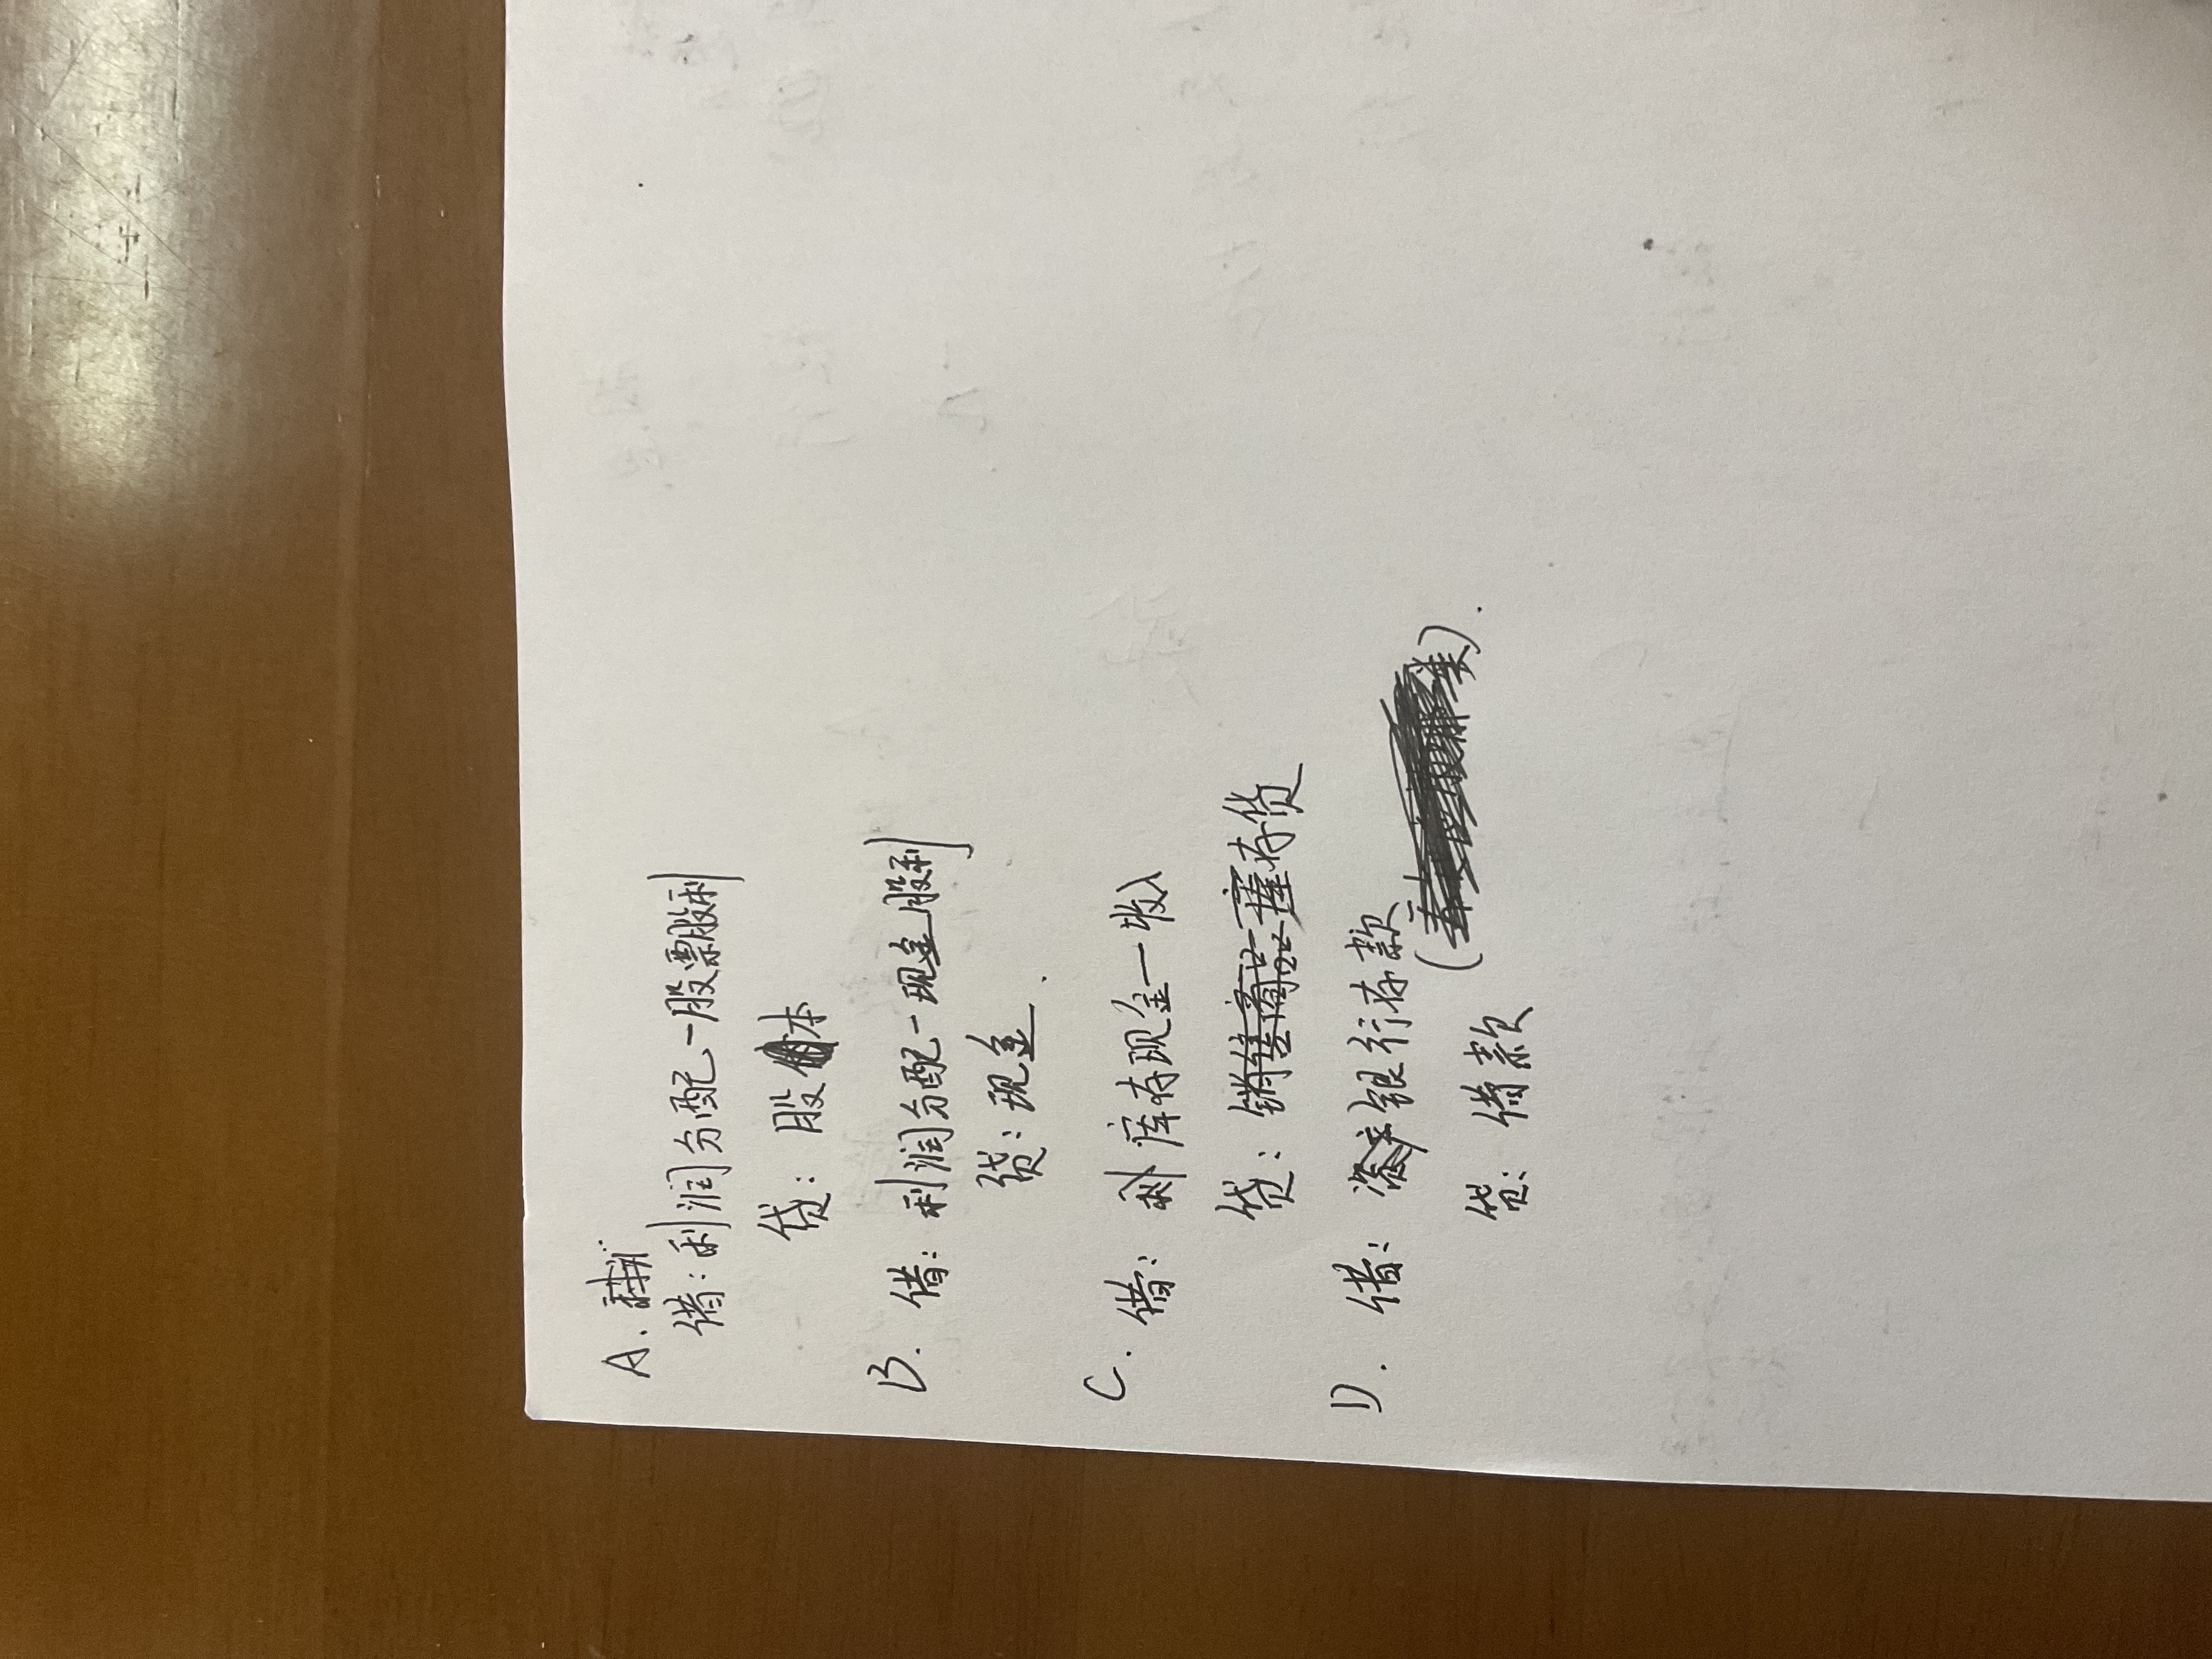 A.
借：利润分配-股票股利
贷：股本
B. 借：利润分配-现金股利
贷：现金.
C. 借：库存现金-收入
贷：销售商品 库存货
D. 借：资产银行存款
( 类).
贷：借款